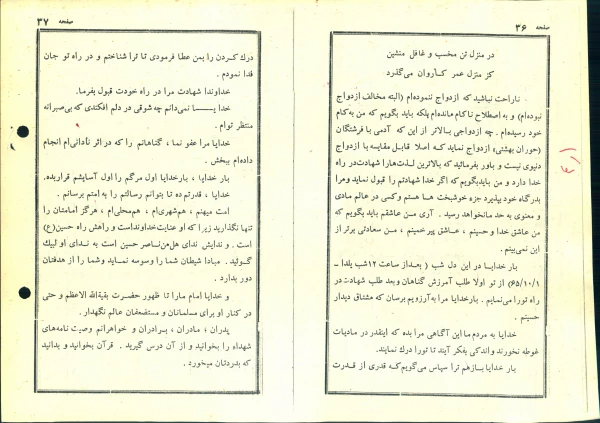 صفحه ۳۶
در منزل تن مخسب و غافل منشین
کز منزل عمر کاروان میگذرد
ناراحت نباشید که ازدواج ننموده‌ام (البته مخالف ازدواج
نبوده‌ام) و به اصطلاح ناکام مانده‌ام بلکه باید بگویم که من به کام
خود رسیده‌ام . چه ازدواجی بالاتر از این که آدمی با فرشتگان
(حوران بهشتی) ازدواج نماید که اصلا قابل مقایسه با ازدواج
دنیوی نیست و باور بفرمائید که بالاترین لذت‌ها را شهادت در راه
خدا دارد و من باید بگویم که اگر خدا شهادتم را قبول نماید و مرا
بدرگاه خود بپذیرد جزء خوشبخت ها هستم و کسی در عالم مادی
و معنوی به حد ما نخواهد رسید . آری من عاشقم باید بگویم که
من عاشق خدا و حسینم ، عاشق پیر خمینم ، من سعادتی برتر از
این نمی‌بینم .
بار خدایا در این دل شب ( بعد از ساعت ۱۲ شب یلدا ـ
۶۵/۱۰/۱) از تو اولا طلب آمرزش گناهان و بعد طلب شهادت در
راه تو را می‌نمایم . بار خدایا مرا به آرزویم برسان که مشتاق دیدار
حسینم .
خدایا به مردم ما این آگاهی را بده که اینقدر در مادیات
غوطه نخورند و اندکی بفکر آیند تا تو را درك نمایند.
بار خدایا باز هم ترا سپاس می‌گویم که قدری از قدرت
صفحه ۳۷
درك کردن را بمن عطا فرمودی تا ترا شناختم و در راه تو جان
فدا نمودم .
خداوندا شهادت مرا در راه خودت قبول بفرما.
خدایا نمی‌دانم چه شوقی در دلم افکندی که بی‌صبرانه
منتظر توام .
خدایا مرا عفو نما ، گناهانم را که در اثر نادانی‌ام انجام
داده‌ام ببخش .
بار خدایا ، بار خدایا اول مرگم را اول آسایشم قرار بده.
خدایا ، قدرتم ده تا بتوانم رسالتم را به امتم برسانم .
امت میهنم ، هم‌شهری‌ام ، هم‌محلی‌ام ، هرگز امامتان را
تنها نگذارید زیرا که او عنایت خداونداست و راهش راه حسین(ع)
است . و ندایش ندای هل‌من‌ناصر حسین است به ندای او لبیك
گوئید . مبادا شیطان شما را وسوسه نماید و شما را از هدفتان
دور بدارد .
و خدایا امام ما را تا ظهور حضرت بقیةالله الاعظم و حتی
در کنار او برای مسلمانان و مستضعفان عالم نگهدار .
پدران ، مادران ، برادران و خواهرانم وصیت نامه‌های
شهداء را بخوانید و از آن درس گیرید . قرآن بخوانید و بدانید
که بدردتان میخورد .